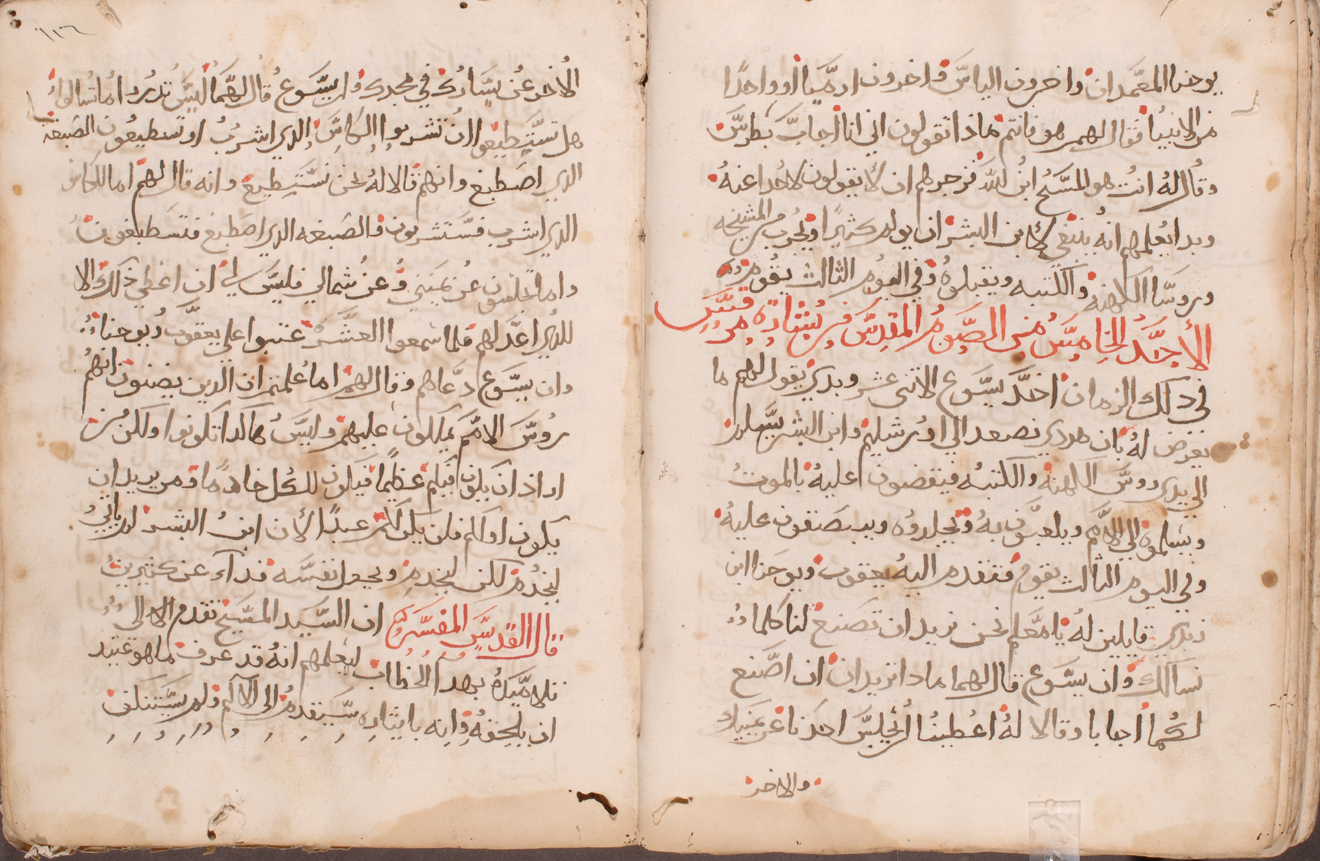 يوحنا المعمدان واخرون الياس واخرون ارميا او واحدًا
من الانبيا فقال لهم هو فانتم ماذا تقولون اني انا اجاب بطرس
وقال له انت هو المسيح ابن الله فزجرهم ان لا يقولون لاحد عنه
وبدا يعلمهم انه ينبغي لابن البشر ان يولم كثيرًا ويجرب من المشيخه
وروسا الكهنه والكتبه ويقتلوه وفي اليوم الثالث يقوم
الأحد الخامس من الصوم المقدس من بشارة مرقس
في ذلك الزمان اخذ يسوع الاثنى عشر وبدي يقول لهم ما
يعرض له بان هودي نصعد الى اورشليم وابن البشر يسلم
الى يدي روس الكهنة والكتبه فيقضون عليه بالموت
ويسلموه الى الامم ويلعبون به ويجلدوه ويبصقون عليه
وفي اليوم الثالث يقوم فتقدم اليه يعقوب ويوحنا ابن
زبدي قايلين له يا معلم نحن نريد ان تصنع لنا كلما
نسالك وان يسوع قال لهما ماذا تريدان ان اصنع
لكما اجابا وقالا له اعطينا ان يجلس احدنا عن يمينك
والاخر
الاخر عن يسارك في مجدك وان يسوع قال لهما ليس تدروا ما تسالوا
هل تستطيعوا ان تشربوا الكاس الذي اشرب او تسطيعون الصبغة
الذي اصطبغ وانهم قالا له نحن نستطيع وانه قال لهم اما الكاس
الذي اشرب فستشربون والصبغه الذي اصطبغ فتسطبغون
واما الجلوس عن يميني وعن شمالي فليس لي ان اعطي ذلك الا
للذي اعد لهم فلما سمعوا العشرة غتبوا على يعقوب ويوحنا
وان يسوع دعاهم وقال لهم اما علمتم ان الذين يضنون انهم
روس الامم يملكون عليهم وليس هاكذا تكونوا ولكن من
اراد ان يكون فيكم عظيمًا فيكون للكل خادمًا ومن يريد ان
يكون اولكم فليكن لكم عبدًا لأن ابن البشر لم ياتي
ليخدم لكن ليخدم ويجعل نفسه فدآء عن كتيرين
قال القديس المفسر ان السيد المسيح تقدم الى
تلاميذه بهدا الخطاب ليعلمهم انه قد عرف ما هو عتيد
ان يلحقه وانه بايثاره سيقدم الى الالم ولم يستنكف